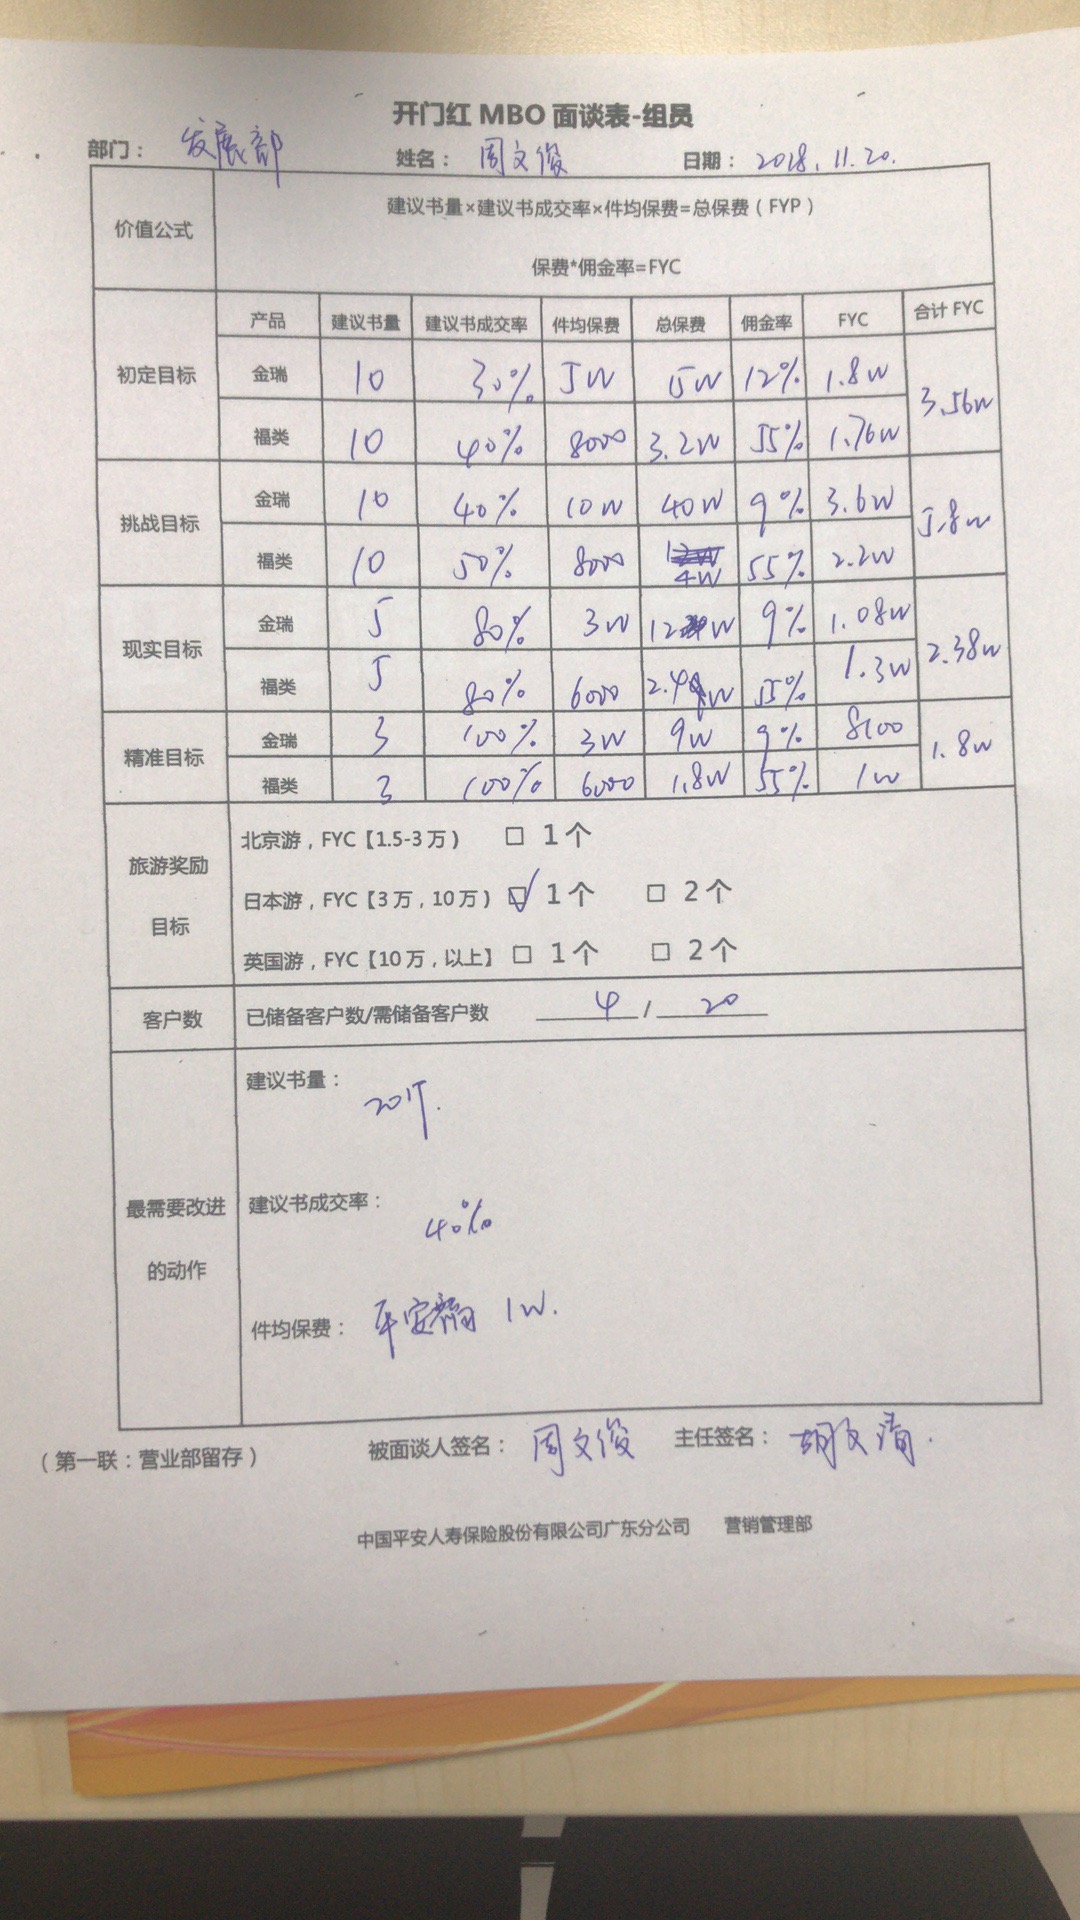 开门红 MBO 面谈表-组员
部门： 发展部 姓名： 周文俊 日期： 2018.11.20.
价值公式 建议书量×建议书成交率×件均保费=总保费（FYP）
保费*佣金率=FYC
产品 建议书量 建议书成交率 件均保费 总保费 佣金率 FYC 合计 FYC
初定目标 金瑞 10 30% 5W 15W 12% 1.8W 3.56W
福类 10 40% 8000 3.2W 55% 1.76W
挑战目标 金瑞 10 40% 10W 40W 9% 3.6W 5.8W
福类 10 50% 8000 4W 55% 2.2W
现实目标 金瑞 5 80% 3W 12W 9% 1.08W 2.38W
福类 5 80% 6000 2.4W 55% 1.3W
精准目标 金瑞 3 100% 3W 9W 9% 8100 1.8W
福类 3 100% 6000 1.8W 55% 1W
旅游奖励
目标
北京游，FYC【1.5-3万） □ 1个
日本游，FYC【3万，10万） ☑ 1个 □ 2个
英国游，FYC【10万，以上】 □ 1个 □ 2个
客户数 已储备客户数/需储备客户数 4 / 20
最需要改进
的动作
建议书量：
20个.
建议书成交率：
40%
件均保费： 平安 1W.
（第一联：营业部留存） 被面谈人签名： 周文俊 主任签名： 胡文清.
中国平安人寿保险股份有限公司广东分公司 营销管理部